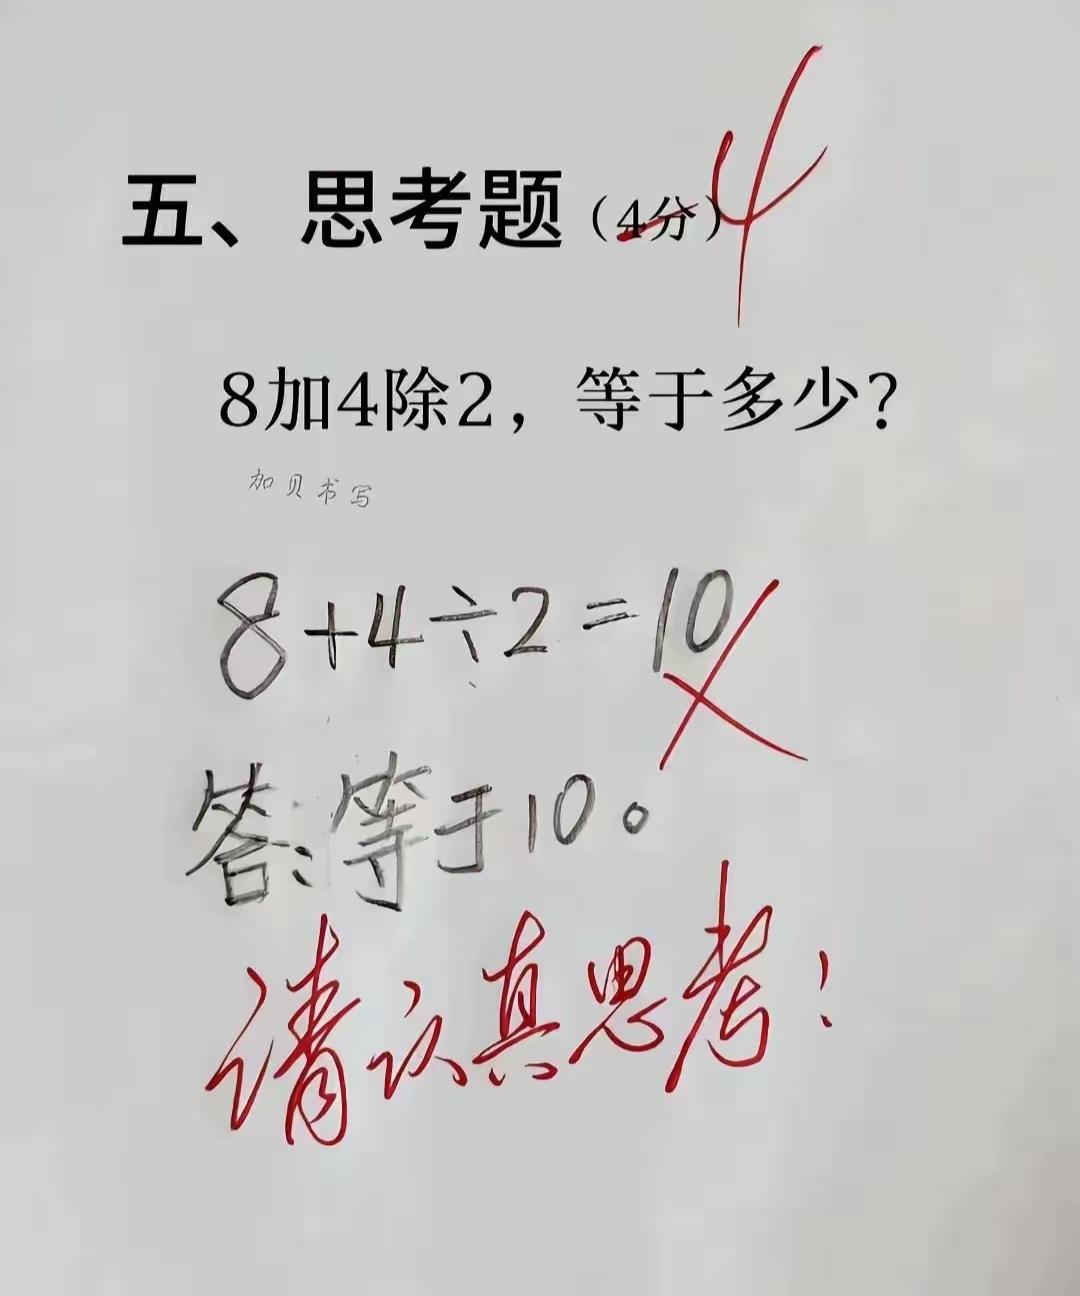 五、思考题（4分） -4
8加4除2，等于多少？
加贝书写
8+4÷2=10
答：等于10。
请认真思考！